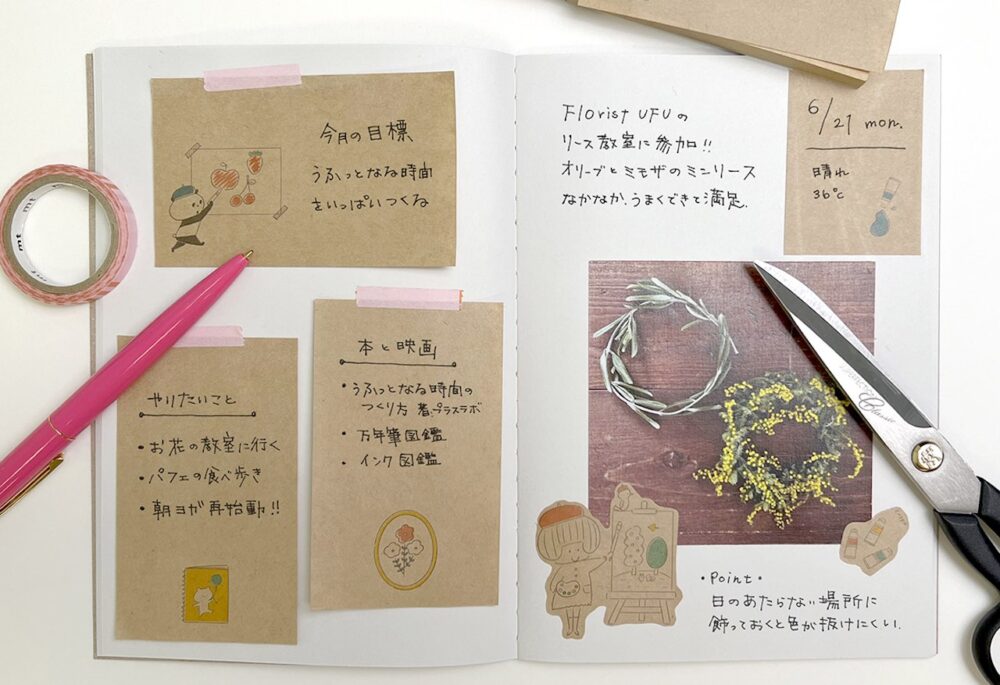 今月の目標
うふっとなる時間
をいっぱいつくる
本と映画
・うふっとなる時間の
つくり方 著.プラスラボ
・万年筆図鑑
・インク図鑑
やりたいこと
・お花の教室に行く
・パフェの食べ歩き
・朝ヨガ再始動!!
Florist UFUの
リース教室に参加!!
オリーブとミモザのミニリース
なかなか、うまくできて満足.
6/21 mon.
晴れ
36℃
・Point・
日のあたらない場所に
飾っておくと色が抜けにくい.
mt
mt
Classic